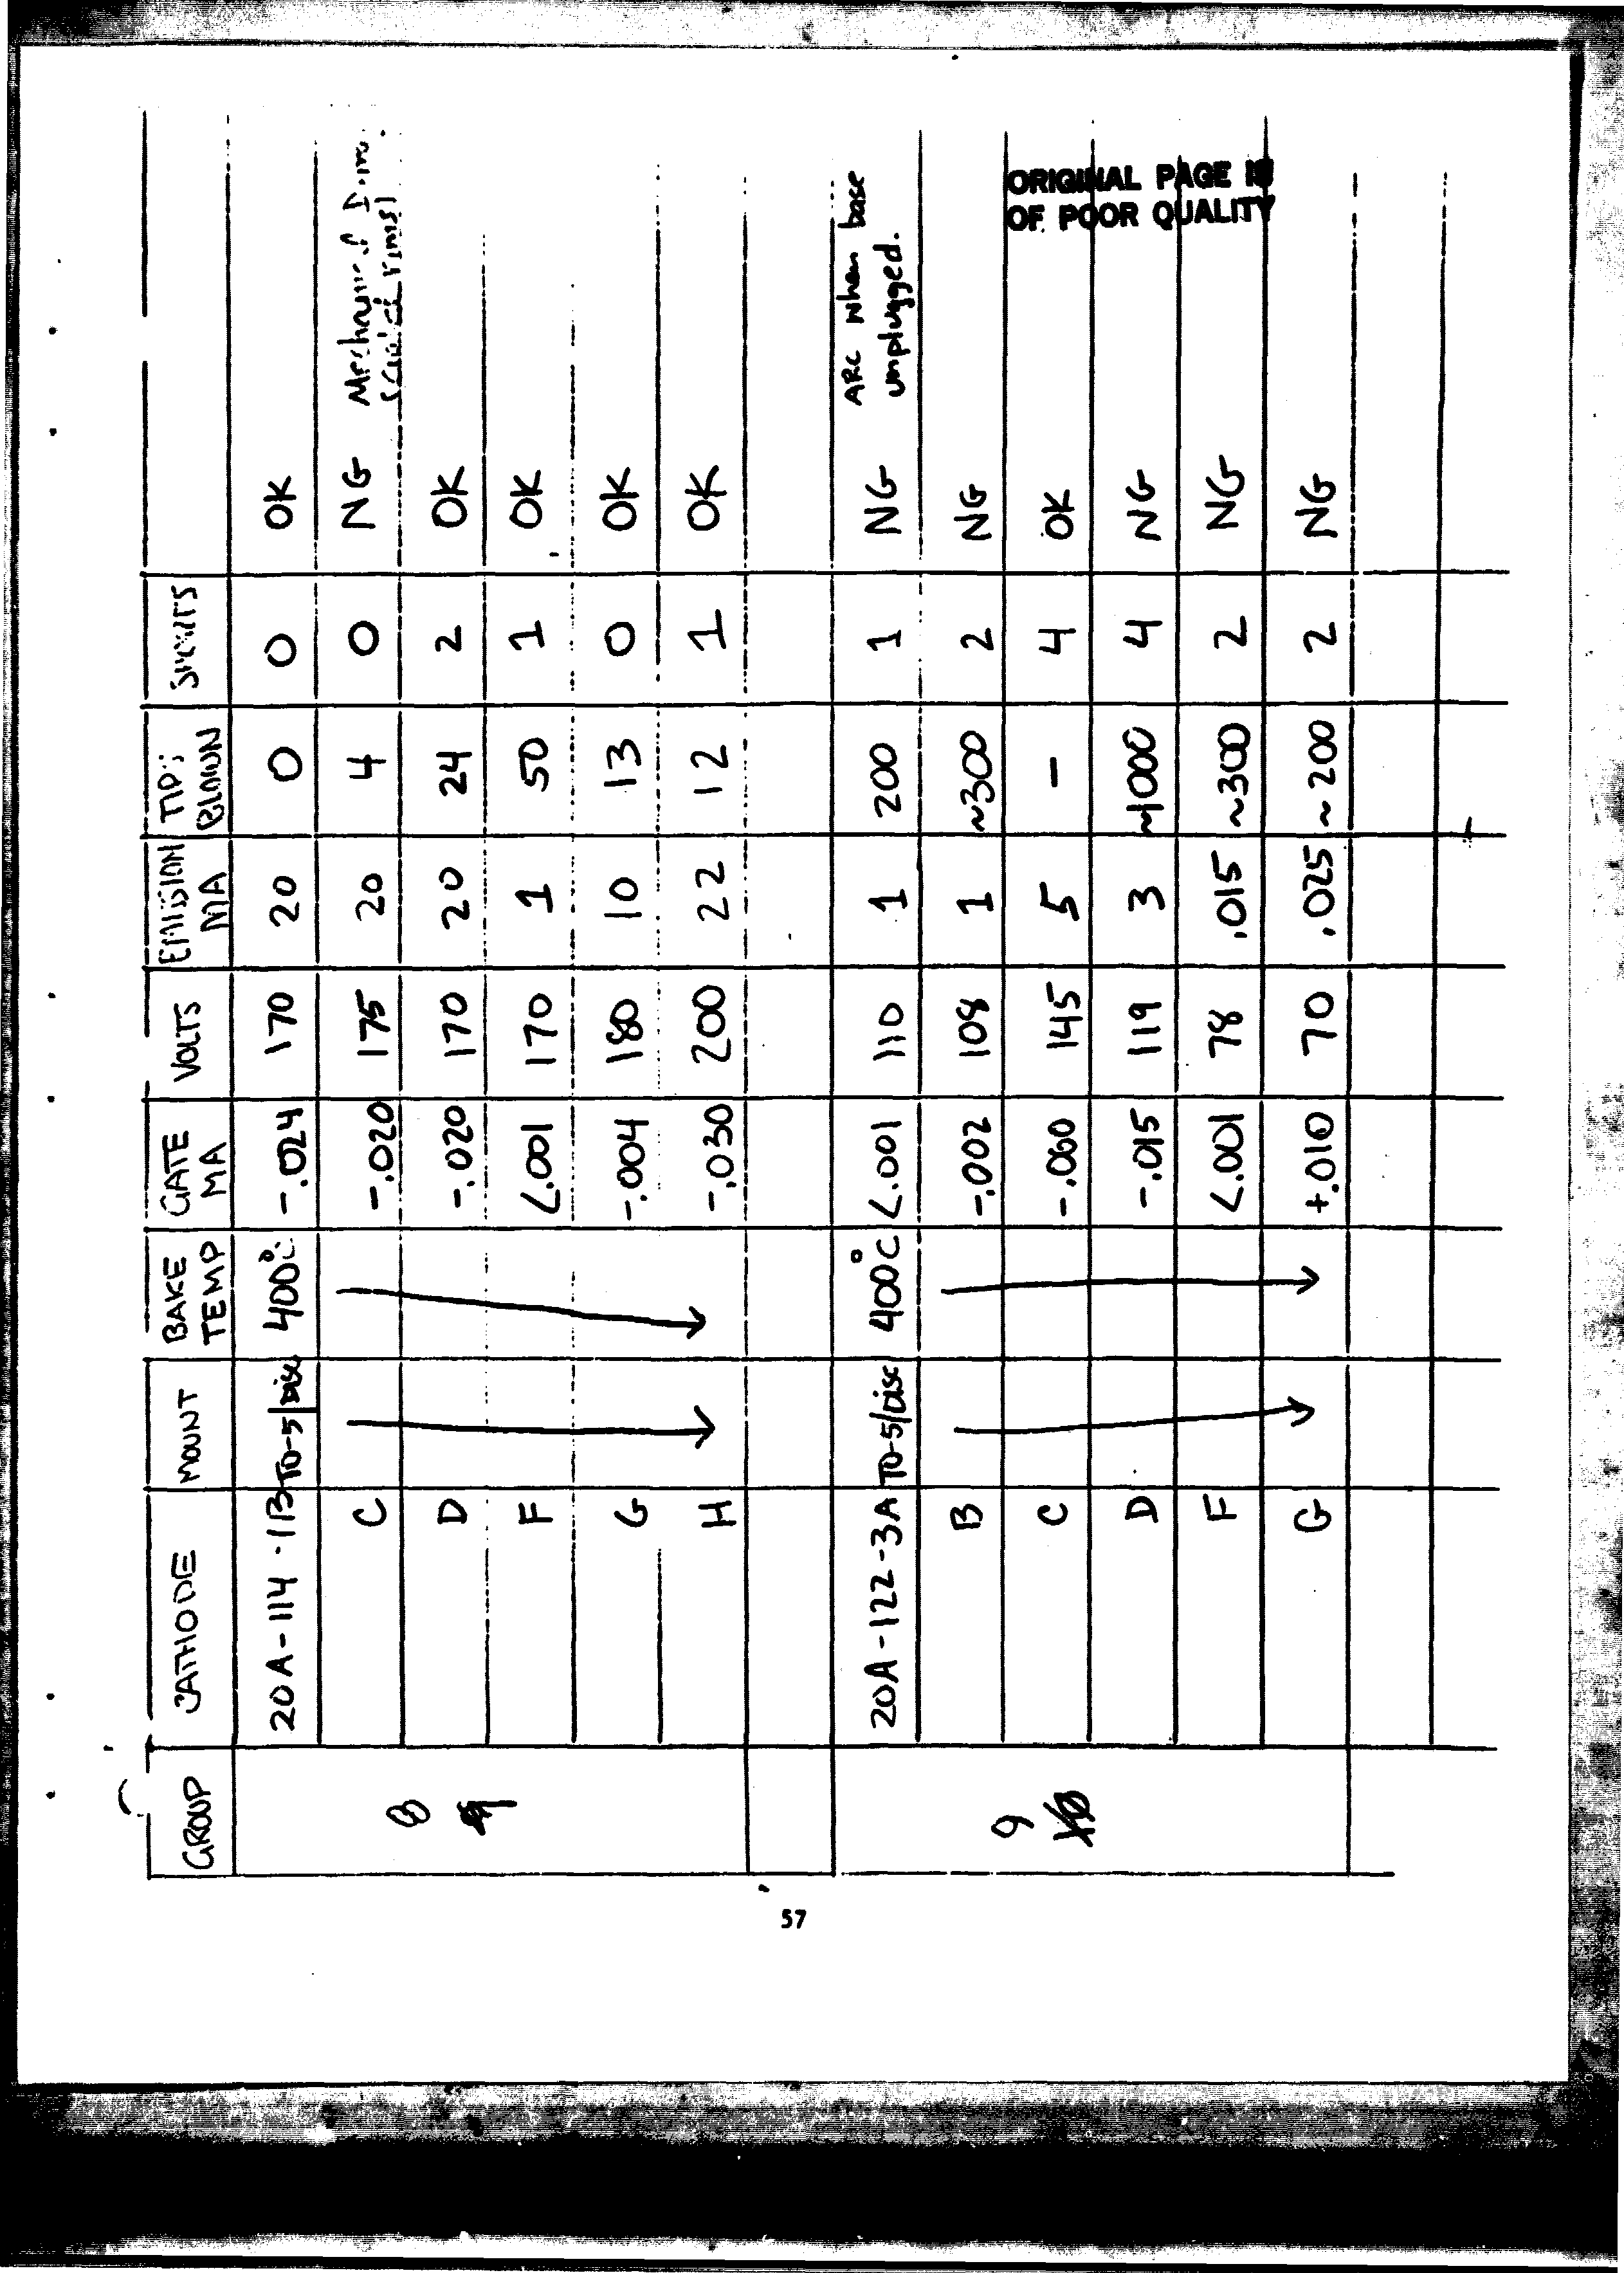 GROUP CATHODE MOUNT BAKE TEMP GATE MA VOLTS EMISSION MA TIPS BLOWN SHORTS
8 20A-114-1B TO-5/Disc 400°C -.024 170 20 0 0 OK
C -.020 175 20 4 0 NG Mechanical
D -.020 170 20 24 2 OK
F <.001 170 1 50 1 OK
G -.004 180 10 13 0 OK
H -.030 200 22 12 1 OK
9 20A-122-3A TO-5/Disc 400°C <.001 110 1 200 1 NG ARC when base unplugged.
B -.002 108 1 ~300 2 NG
C -.060 145 5 - 4 OK
D -.015 119 3 ~1000 4 NG
F <.001 78 .015 ~300 2 NG
G +.010 70 .025 ~200 2 NG
ORIGINAL PAGE IS
OF POOR QUALITY
57